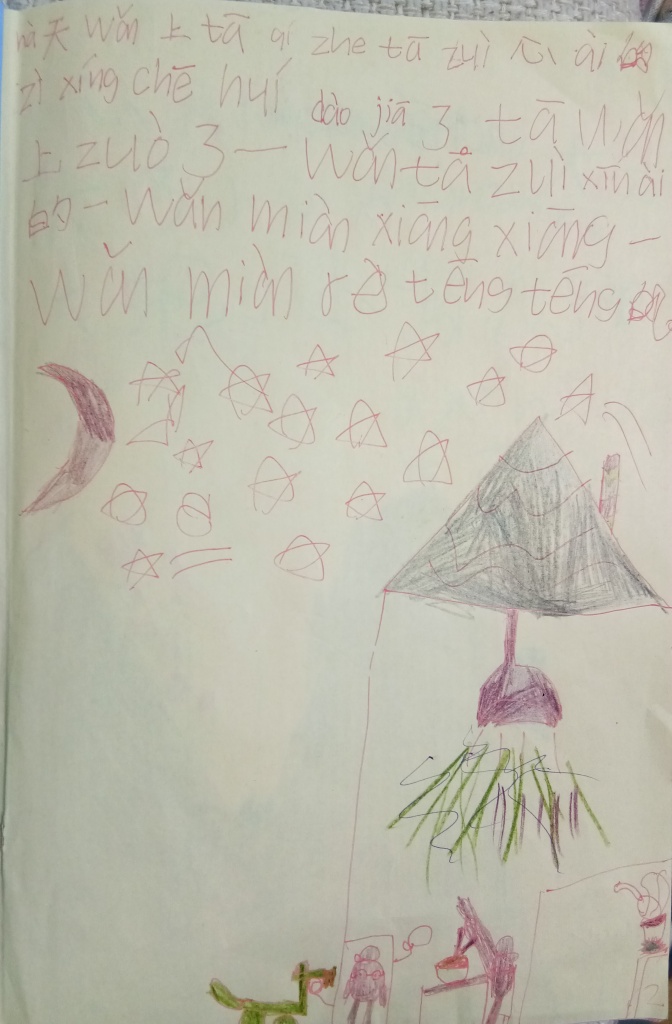 nà天 wǎn 上 tā qí zhe tā zuì 心 ài 的
zì xíng chē huí
dào jiā 3 tā wǎn
上 zuò 3 一 wǎn tā zuì xīn ài
的 一 wǎn miàn xiāng xiāng 一
wǎn miàn rè tēng tēng 的
2